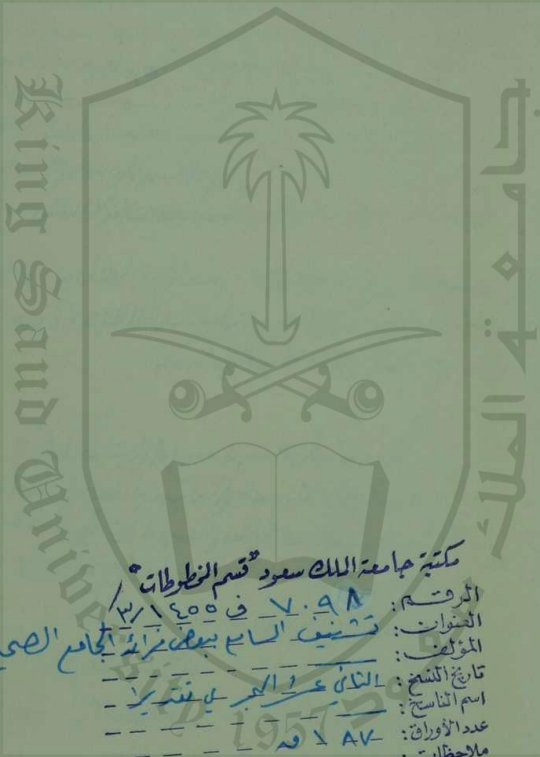 King Saud University
جامعة الملك
1957
مكتبة جامعة الملك سعود "قسم المخطوطات"
الرقم: ٧٠٩٨ ف ١٤٥٥/٣
العنوان: تشنيف السامع ببعض فرائد الجامع الصح
المؤلف:
تاريخ النسخ: الثاني عشر الهجري تقديرا
اسم الناسخ:
عدد الأوراق: ١٨٧ ق
ملاحظات: